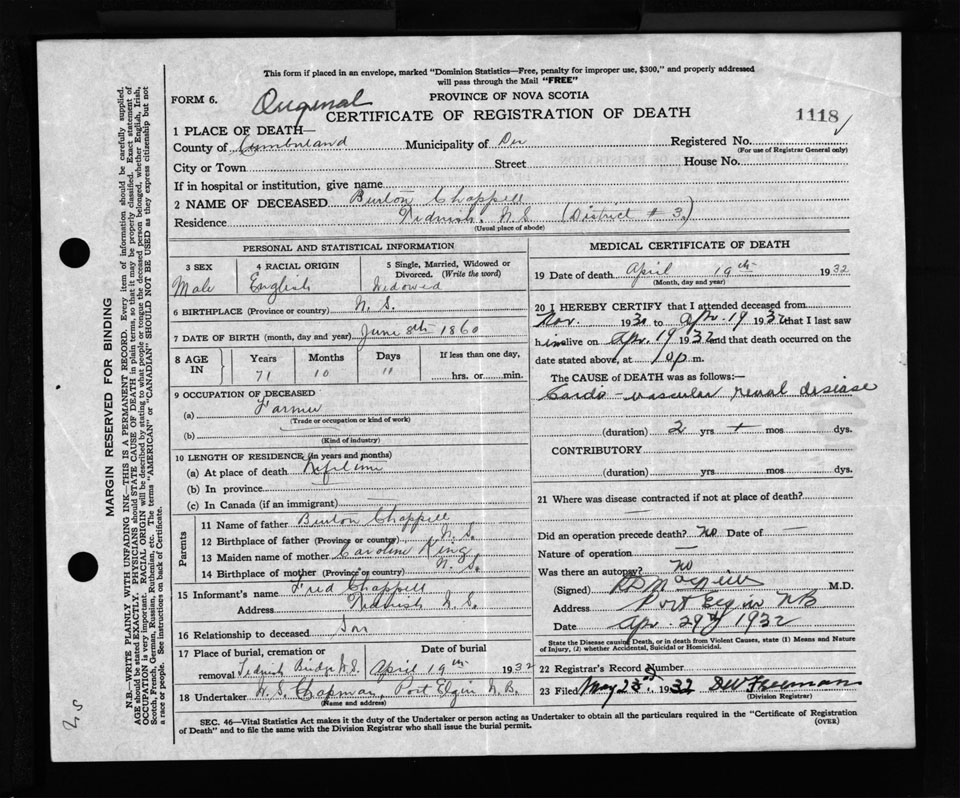 This form if placed in an envelope, marked "Dominion Statistics—Free, penalty for improper use, $300," and properly addressed
will pass through the Mail "FREE"
FORM 6.
Original
PROVINCE OF NOVA SCOTIA
CERTIFICATE OF REGISTRATION OF DEATH
1118 ✓
1 PLACE OF DEATH—
County of Cumberland Municipality of Registered No.
(For use of Registrar General only)
City or Town Street House No.
If in hospital or institution, give name
2 NAME OF DECEASED Burton Chappell
Residence Tidnish, N.S. (District # 3)
(Usual place of abode)
PERSONAL AND STATISTICAL INFORMATION
3 SEX
Male
4 RACIAL ORIGIN
English
5 Single, Married, Widowed or
Divorced. (Write the word)
Widowed
6 BIRTHPLACE (Province or country) N. S.
7 DATE OF BIRTH (month, day and year) June 8th 1860
8 AGE
IN
Years
71
Months
10
Days
11
If less than one day,
hrs. or min.
9 OCCUPATION OF DECEASED
(a) Farmer
(Trade or occupation or kind of work)
(b)
(Kind of industry)
10 LENGTH OF RESIDENCE (in years and months)
(a) At place of death Lifetime
(b) In province
(c) In Canada (if an immigrant) —
Parents
11 Name of father Burton Chappell
12 Birthplace of father (Province or country) N. S.
13 Maiden name of mother Caroline King
14 Birthplace of mother (Province or country) N. S.
15 Informant's name Fred Chappell
Address Tidnish N.S.
16 Relationship to deceased Son
17 Place of burial, cremation or
removal Tidnish Bridge N.S.
Date of burial
April 19th 1932
18 Undertaker W. S. Chapman, Port Elgin N.B.
(Name and address)
MEDICAL CERTIFICATE OF DEATH
19 Date of death April 19th 1932
(Month, day and year)
20 I HEREBY CERTIFY that I attended deceased from
Nov. 1931 to Apr. 19 1932 that I last saw
him alive on Apr. 19 1932 and that death occurred on the
date stated above, at 10 p m.
The CAUSE of DEATH was as follows:—
Cardio-vascular renal disease
(duration) 2 yrs + mos dys.
CONTRIBUTORY
(duration) yrs. mos. dys.
21 Where was disease contracted if not at place of death?
—
Did an operation precede death? No Date of —
Nature of operation —
Was there an autopsy? No
(Signed) M.D.
Address Port Elgin NB
Date Apr. 29th 1932
State the Disease causing Death, or in death from Violent Causes, state (1) Means and Nature
of Injury, (2) whether Accidental, Suicidal or Homicidal.
22 Registrar's Record Number
23 Filed May 23rd 1932 DW Freeman
(Division Registrar)
SEC. 46—Vital Statistics Act makes it the duty of the Undertaker or person acting as Undertaker to obtain all the particulars required in the "Certificate of Registration
of Death" and to file the same with the Division Registrar who shall issue the burial permit.
(OVER)
MARGIN RESERVED FOR BINDING
N.B.—WRITE PLAINLY WITH UNFADING INK—THIS IS A PERMANENT RECORD. Every item of information should be carefully supplied.
AGE should be stated EXACTLY. PHYSICIANS should STATE CAUSE OF DEATH in plain terms, so that it may be properly classified. Exact statement of
OCCUPATION is very important. RACIAL ORIGIN will be described by stating to what people or tongue the deceased person belonged, whether English, Irish,
Scotch, French, German, Russian, Ruthenian, etc. The terms "AMERICAN" or "CANADIAN" SHOULD NOT BE USED as they express citizenship but not
a race or people. See instructions on back of Certificate.